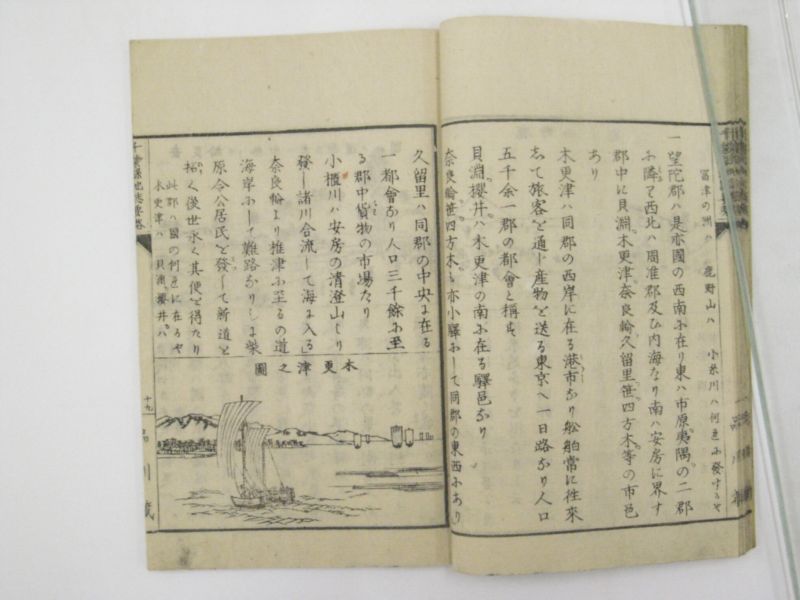 富津の洲ハ　鹿野山ハ　小糸川ハ何邑ふ發するや
一望陀郡ハ是亦國の西南ふ在り東ハ市原夷隅の二郡
ふ隣て西北ハ周准郡及ひ内海なり南ハ安房に界す
郡中に貝淵木更津奈良輪久留里笹四方木等の市邑
あり
木更津ハ同郡の西岸に在る港市なり舩舶常に往來
して旅客を通し産物を送る東京へ一日路なり人口
五千余一郡の都會と稱す
貝淵櫻井ハ木更津の南ふ在る驛邑なり
奈良輪笹四方木も亦小驛ふして同郡の東西ふあり
久留里ハ同郡の中央ふ在る
一都會なり人口三千餘ふ至
る郡中貨物の市場たり
小櫃川ハ安房の清澄山より
發し諸川合流して海ふ入る
奈良輪より椎津ふ至るの道
海岸ふして難路なりしに柴
原令公居民を發して新道を
拓く後世永く其便を得たり
此郡ハ國の何邑に在るや
木更津ハ　貝淵櫻井ハ
木更津之圖
千葉縣地誌要畧
十九